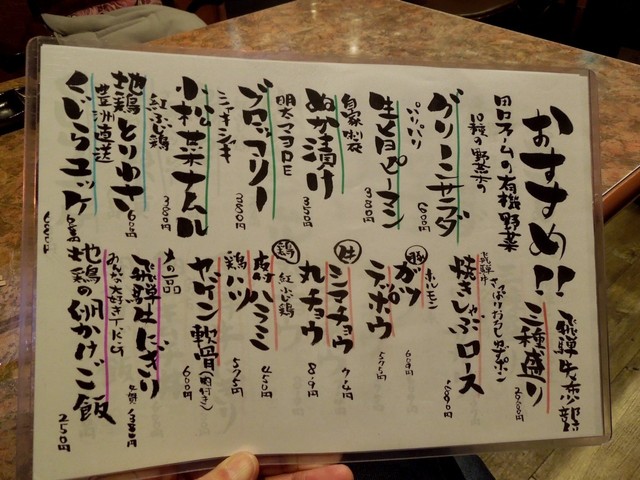 おすすめ!!
田口ファームの有機野菜
10種の野菜の
グリーンサラダ
600円
パリパリ
生ピーマン
380円
自家製
ぬか漬け
350円
明太マヨorE
ブロッコリー
380円
ニンニクネギ
小松菜ナムル
380円
紅ふじ鶏
地鶏とりわさ
600円
豊洲直送
くじらユッケ
680円
飛騨牛
三種盛り
2000円
飛騨牛
さっぱりおろし
焼きしゃぶロース
ホルモン
豚
ガツ
テッポウ
595円
牛
シマチョウ
丸チョウ
819円
鶏
紅ふじ鶏
ハラミ
450円
鶏ハツ
595円
ヤゲン軟骨(肉付き)
600円
〆の一品
飛騨牛にぎり
みんな大好きTKG
地鶏の卵かけご飯
250円